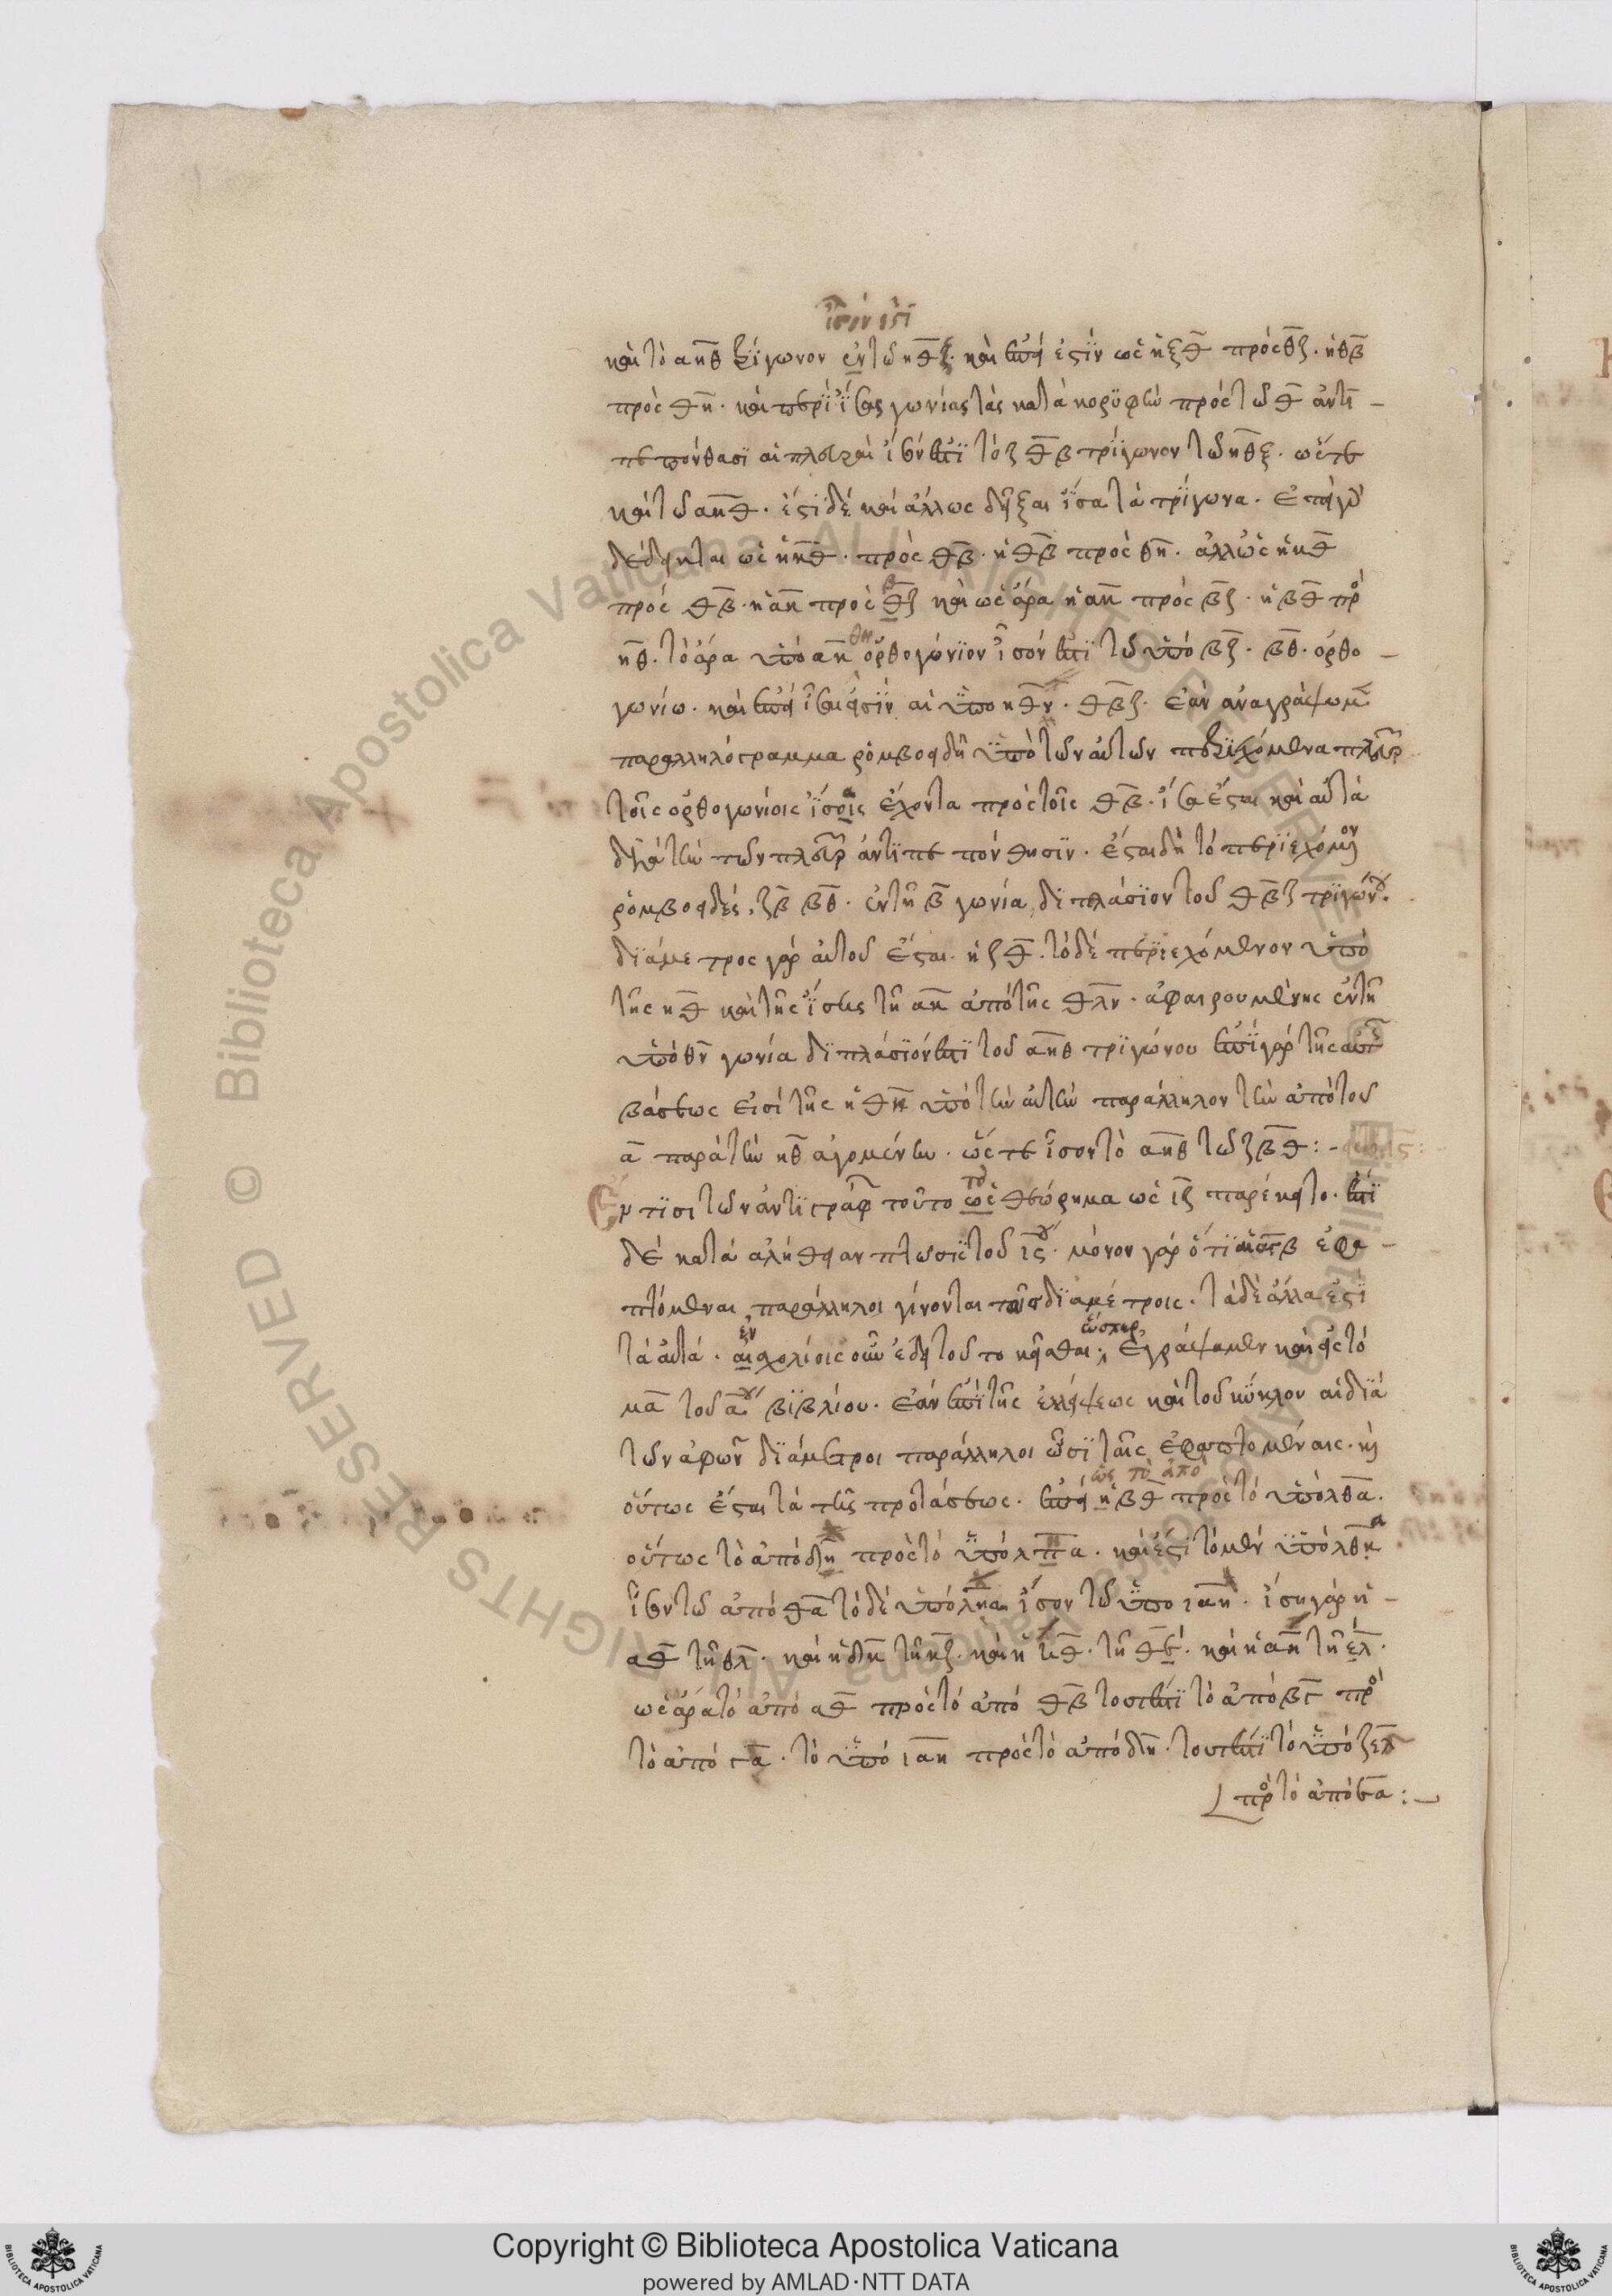 ἴσον ἐστὶ
καὶ τὸ ΑΗΘ τρίγωνον ἐν τῶ ΗΘΞ. καὶ ἐπεί ἐστιν ὡς ἡ ΞΘ πρὸς ΘΖ. ἡ ΘΒ
πρὸς ΘΗ. καὶ περὶ ἴσας γωνίας τὰς κατὰ κορυφὴν πρὸς τῶ Θ ἀντι
πεπόνθασιν αἱ πλευραὶ ἴσόν ἐστι τὸ ΖΘΒ τρίγωνον τῶ ΗΘΞ. ὥστε
καὶ τῶ ΑΗΘ. ἔστι δὲ καὶ ἄλλως δεῖξαι ἴσα τὰ τρίγωνα. ἐπεὶ γὰρ
δέδεικται ὡς ἡ ΚΘ πρὸς ΘΒ. ἡ ΘΒ πρὸς ΘΗ. ἀλλ ὡς ἡ ΚΘ
πρὸς ΘΒ. ἡ ΑΗ πρὸς ΘΖ καὶ ὡς ἄρα ἡ ΑΗ πρὸς ΒΖ. ἡ ΒΘ πρὸς
ΗΘ. τὸ ἄρα ὑπὸ ΑΗ ΘΗ ὀρθογώνιον ἴσόν ἐστι τῶ ὑπὸ ΒΖ. ΒΘ. ὀρθο
γωνίω. καὶ ἐπεὶ ἴσαι εἰσὶν αἱ ὑπὸ ΗΘΓ. ΘΒΖ. ἐὰν ἀναγράψωμεν
παραλληλόγραμμα ῥομβοειδῆ ὑπὸ τῶν αὐτῶν περιεχόμενα πλευρῶν
τοῖς ὀρθογωνίοις ἴσας ἔχοντα πρὸς τοῖς ΘΒ. ἴσα ἔσται καὶ αὐτὰ
διὰ τὴν τῶν πλευρῶν ἀντιπεπόνθησιν. ἔσται δὴ τὸ περιεχόμενον
ῥομβοειδὲς ΖΒ ΒΘ. ἐν τῆ Β γωνία διπλάσιον τοῦ ΘΒΖ τριγώνου.
διάμετρος γὰρ αὐτοῦ ἔσται ἡ ΖΘ. τὸ δὲ περιεχόμενον ὑπὸ
τῆς ΗΘ καὶ τῆς ἴσης τῆ ΑΗ ἀπὸ τῆς ΘΛΝ. ἀφαιρουμένης ἐν τῆ
ὑπὸ ΘΝ γωνία διπλάσιόν ἐστι τοῦ ΑΗΘ τριγώνου ἐπὶ γὰρ τῆς αὐτῆς
βάσεώς εἰσι τῆς ΗΘ ὑπὸ τὴν αὐτὴν παράλληλον τὴν ἀπὸ τοῦ
Α παρὰ τὴν ΗΘ ἀγομένην. ὥστε ἴσον τὸ ΑΗΘ τῶ ΖΒΘ:
Ἔν τισι τῶν ἀντιγράφων τοῦτο ὡς θεώρημα ὡς ΙΖ παρέκειτο. ἔστι
δὲ κατὰ ἀλήθειαν πτῶσις τοῦ ΙϚου. μόνον γὰρ ὅτι αἱ ΑΓΒ ἐφα
πτόμεναι παράλληλοι γίνονται ταῖς διαμέτροις. τὰ δὲ ἄλλα ἐστὶ
τὰ αὐτά. ἐν σχολίοις οὖν ἔδει τοῦτο κεῖσθαι ὥσπερ ἐγράψαμεν καὶ εἰς τὸ
ΜΑ τοῦ Αου βιβλίου. ἐὰν ἐπὶ τῆς ἐλλείψεως καὶ τοῦ κύκλου αἱ διὰ
τῶν ἁφῶν διάμετροι παράλληλοι ὦσι ταῖς ἐφαπτομέναις. καὶ
οὕτως ἔσται τὰ τῆς προτάσεως. ἐπεὶ ὡς τὸ ἀπὸ ΒΘ πρὸς τὸ ὑπὸ ΛΘΑ.
οὕτως τὸ ἀπὸ ΔΗ πρὸς τὸ ὑπὸ ΛΗΑ. καί ἐστι τὸ μὲν ὑπὸ ΛΘΑ
ἴσον τῶ ἀπὸ ΘΑ τὸ δὲ ὑπὸ ΛΗΑ ἴσον τῶ ὑπὸ ΙΑΗ. ἴση γὰρ ἡ
ΑΘ τῆ ΘΛ. καὶ ἡ ΔΗ τῆ ΗΖ. καὶ ἡ ΙΘ. τῆ ΘΕ. καὶ ἡ ΑΗ τῆ ΕΛ.
ὡς ἄρα τὸ ἀπὸ ΑΘ πρὸς τὸ ἀπὸ ΘΒ τουτέστι τὸ ἀπὸ ΒΓ πρὸς
τὸ ἀπὸ ΓΑ. τὸ ὑπὸ ΙΑΗ πρὸς τὸ ἀπὸ ΔΗ. τουτέστι τὸ ὑπὸ ΖΕΔ
πρὸς τὸ ἀπὸ ΕΑ: